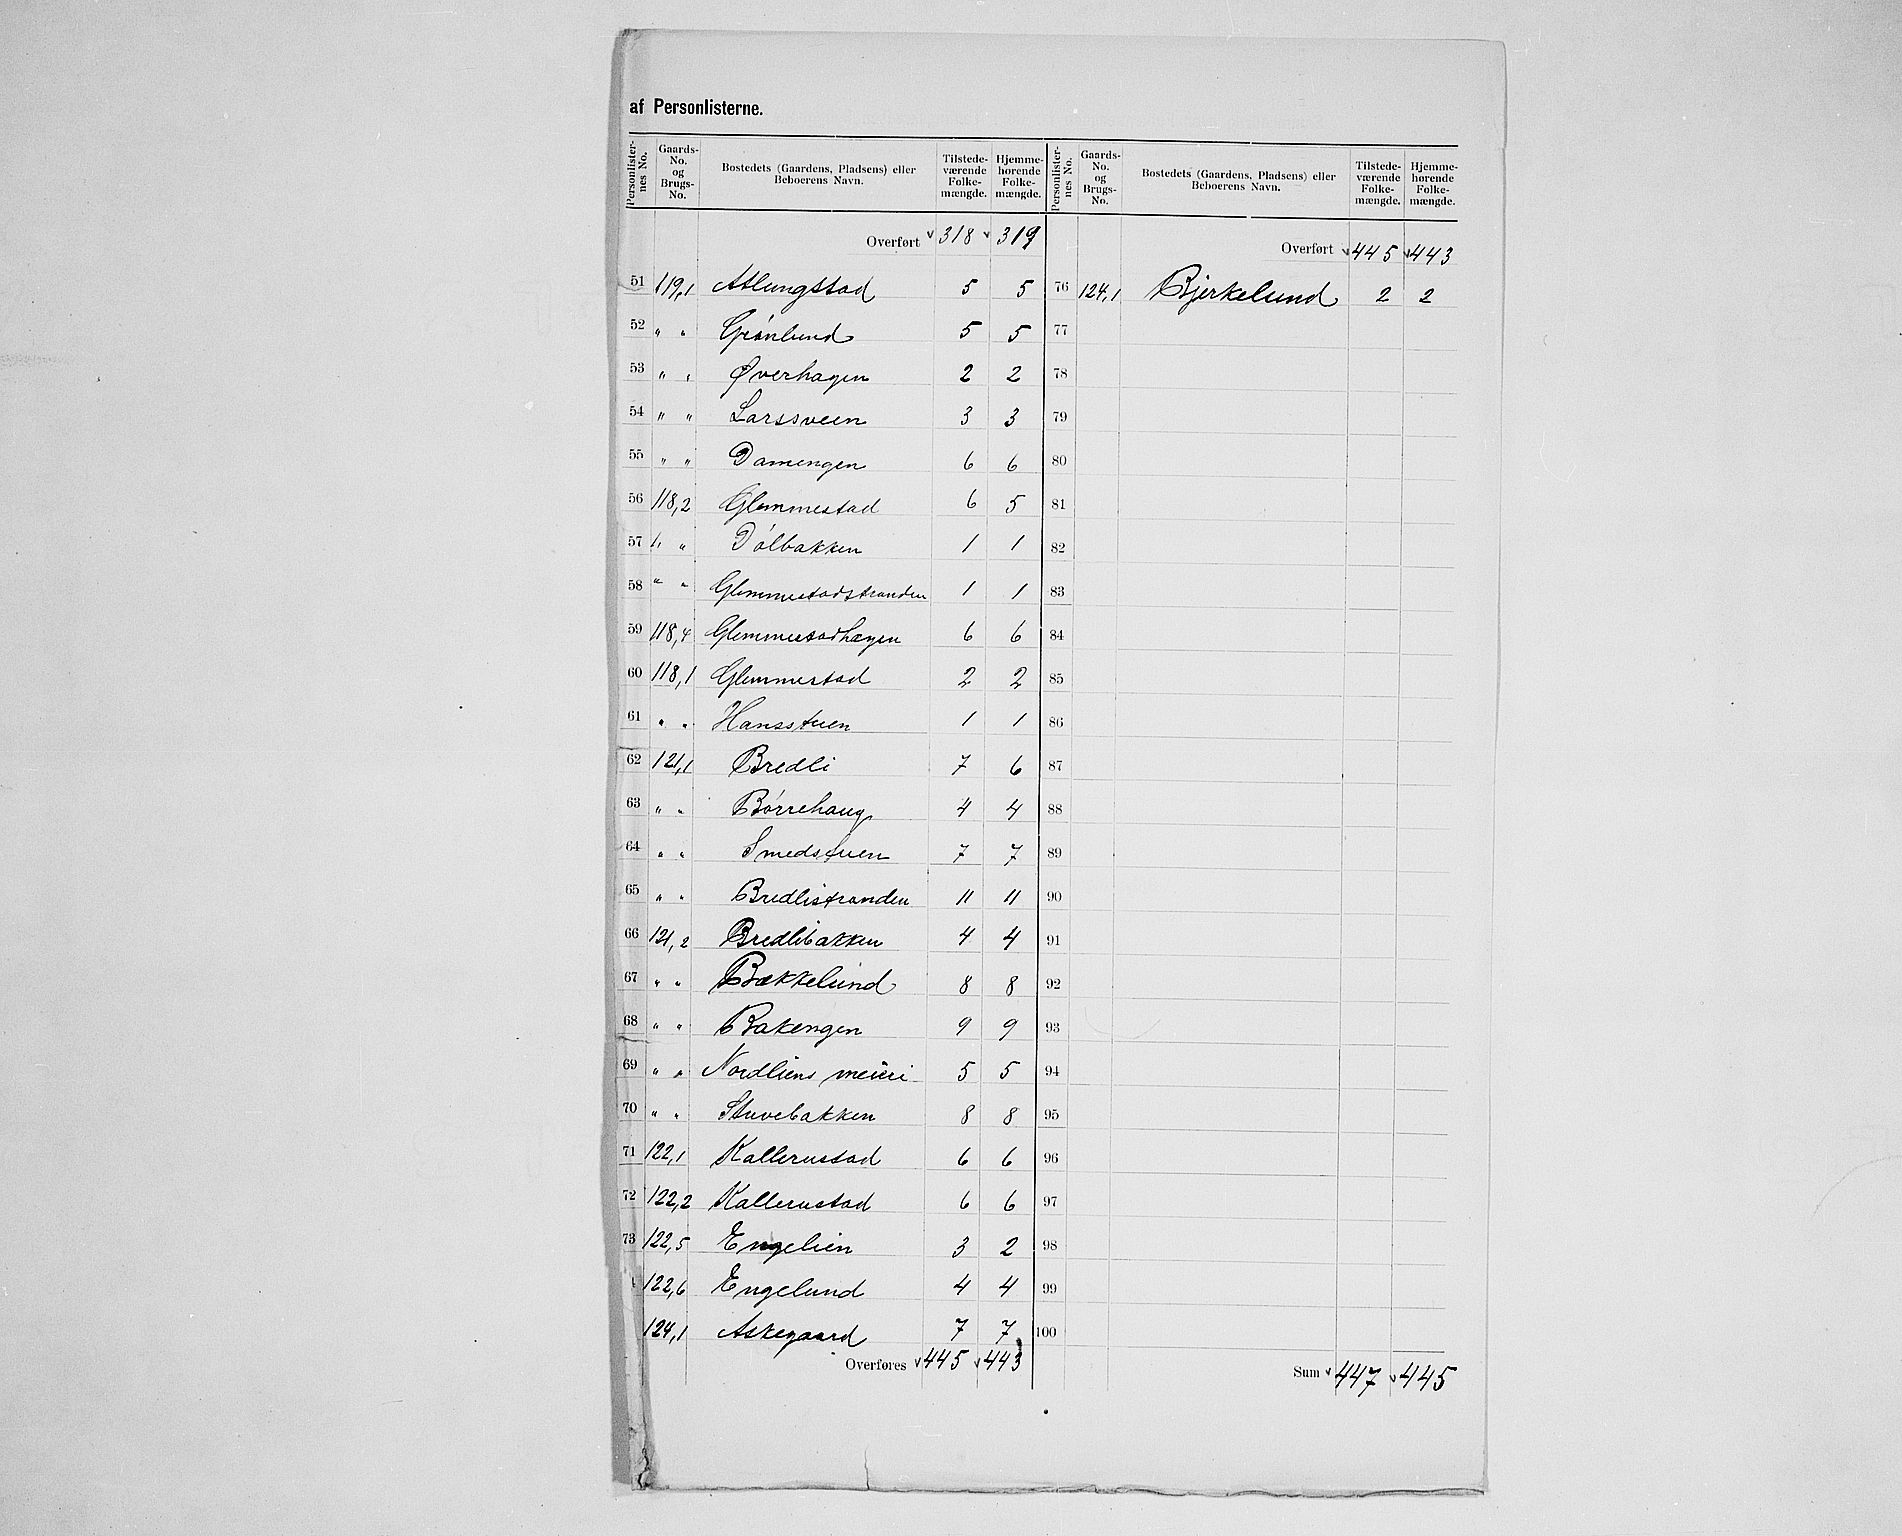 af Personlisterne.
Personlisternes No. Gaards-No. og Brugs-No. Bostedets (Gaardens, Pladsens) eller Beboerens Navn. Tilstedeværende Folkemængde. Hjemmehørende Folkemængde. Personlisternes No. Gaards-No. og Brugs-No. Bostedets (Gaardens, Pladsens) eller Beboerens Navn. Tilstedeværende Folkemængde. Hjemmehørende Folkemængde.
Overført 318 319 Overført 445 443
51 119,1 Atlungstad 5 5 76 124,1 Bjerkelund 2 2
52 " " Grønlund 5 5 77
53 " " Øverhagen 2 2 78
54 " " Larssveen 3 3 79
55 " " Damengen 6 6 80
56 118,2 Glemmestad 6 5 81
57 " " Dølbakken 1 1 82
58 " " Glemmestadstranden 1 1 83
59 118,4 Glemmestadhagen 6 6 84
60 118,1 Glemmestad 2 2 85
61 " " Hansstuen 1 1 86
62 121,1 Bredli 7 6 87
63 " " Børrehaug 4 4 88
64 " " Smedstuen 7 7 89
65 " " Bredlistranden 11 11 90
66 121,2 Bredlibakken 4 4 91
67 " " Bækkelund 8 8 92
68 " " Bakengen 9 9 93
69 " " Nordliens meieri 5 5 94
70 " " Stuvebakken 8 8 95
71 122,1 Kallerustad 6 6 96
72 122,2 Kallerustad 6 6 97
73 122,5 Engelien 3 2 98
122,6 Engelund 4 4 99
124,1 Askegaard 7 7 100
Overføres 445 443 Sum 447 445